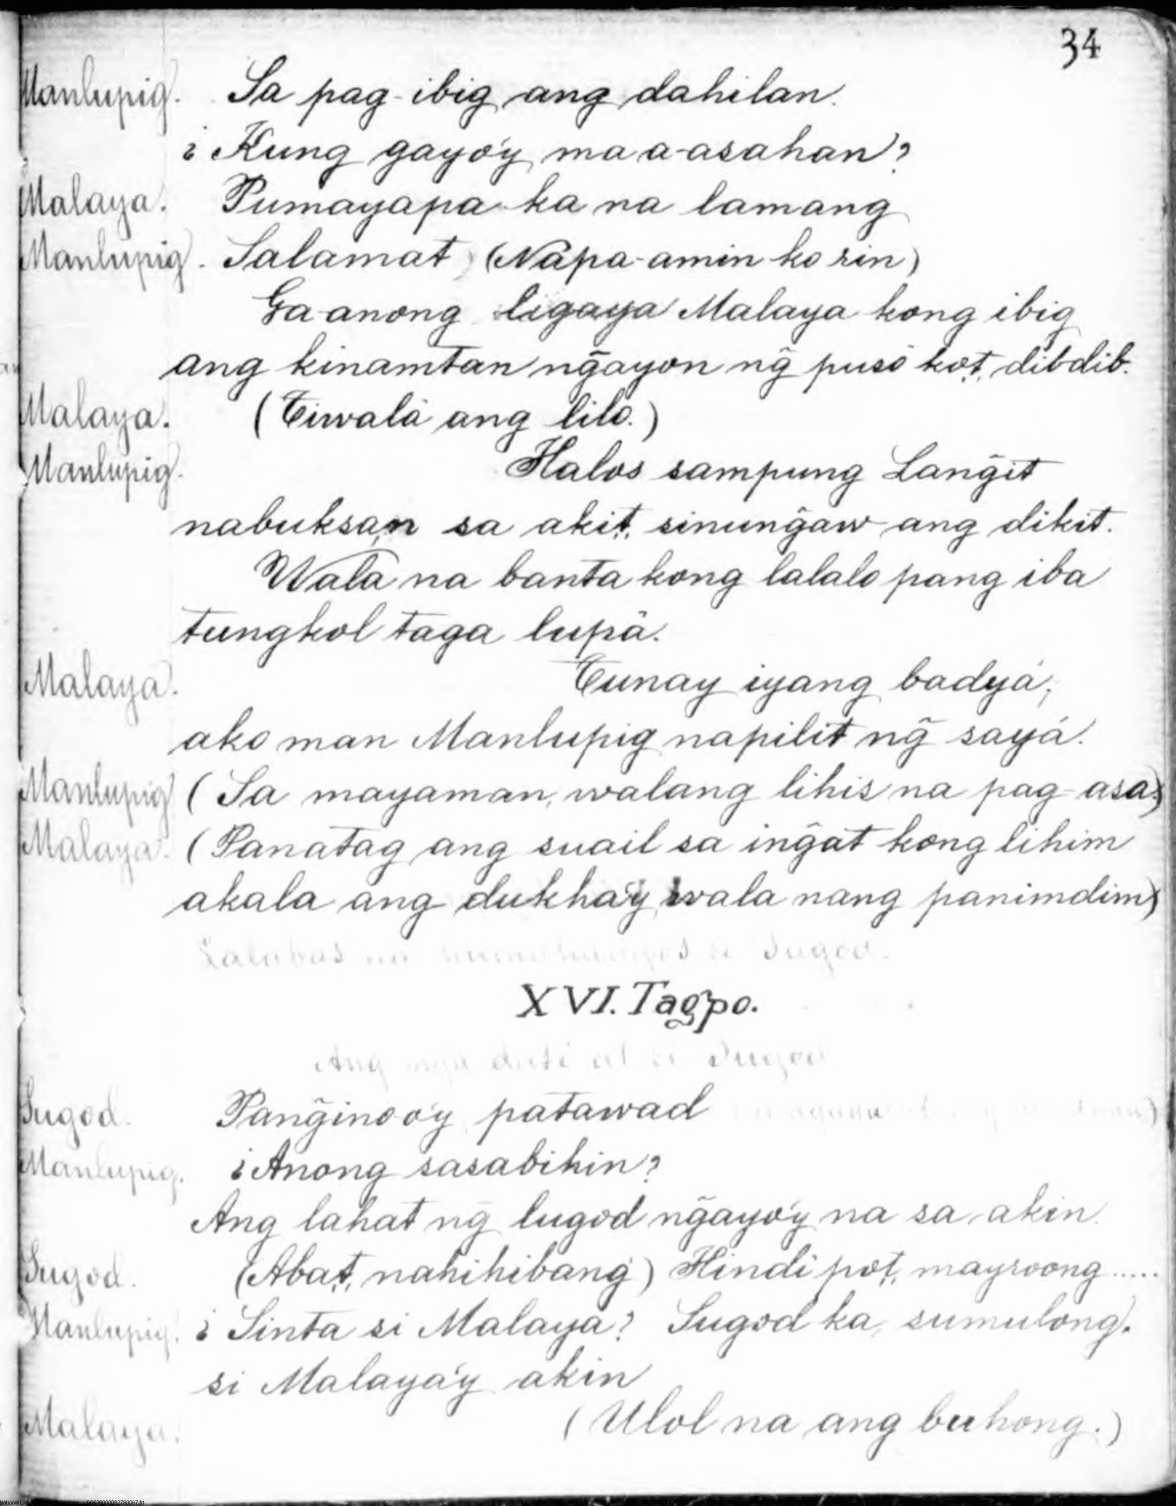 34
Manlupig. Sa pag-ibig ang dahilan.
¿Kung gayo'y maa-asahan?
Malaya. Pumayapa ka na lamang
Manlupig. Salamat (Napa-amin ko rin)
Ga-anong ligaya Malaya kong ibig
ang kinamtan ng̃ayon ng̃ pusò ko't, dibdib.
Malaya. (Tiwalà ang lilo.)
Manlupig. Halos sampung Lang̃it
nabuksan sa aki't, sinung̃aw ang dikit.
Walà na banta kong lalalo pang iba
tungkol taga lupà.
Malaya. Tunay iyang badyá;
ako man Manlupig napilit ng̃ sayá.
Manlupig (Sa mayaman, walang lihis na pag-asa)
Malaya. (Panatag ang suail sa ing̃at kong lihim
akala ang dukha'y wala nang panimdim)
Lalabas na si Sugod.
XVI. Tagpo.
Ang mga dati at si Sugod
Sugod. Pang̃ino-o'y patawad
Manlupig. ¿Anong sasabihin?
Ang lahat ng̃ lugod ng̃ayo'y na sa akin.
Sugod. (Aba't, nahihibang) Hindi po't, mayroong.....
Manlupig. ¿Sinta si Malaya? Sugod ka, sumulong.
si Malaya'y akin
Malaya. (Ulol na ang buhong.)